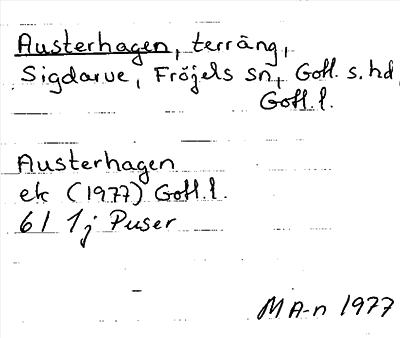 Austerhagen, terräng,
Sigdarve, Fröjels sn, Gotl. s. hd,
Gotl. l.
Austerhagen
ek (1977) Gotl. l.
6I 1j Puser
MA-n 1977